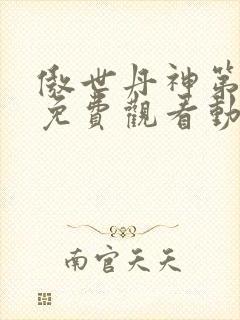 傲世丹神第
免費觀看動
南宮天天